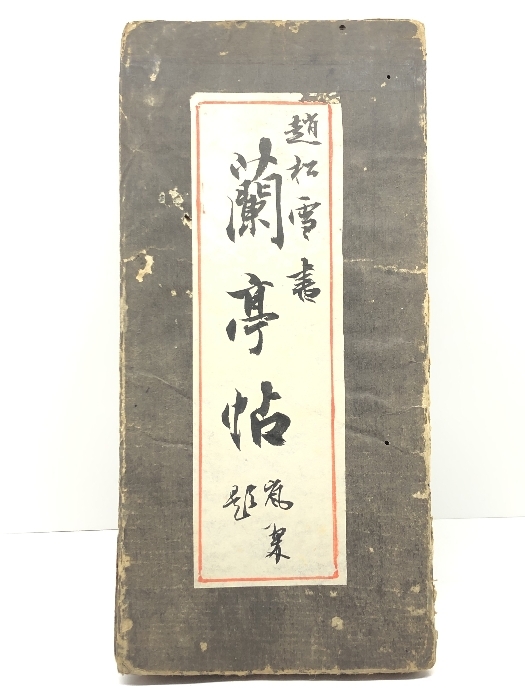 趙松雪書
蘭亭帖
題